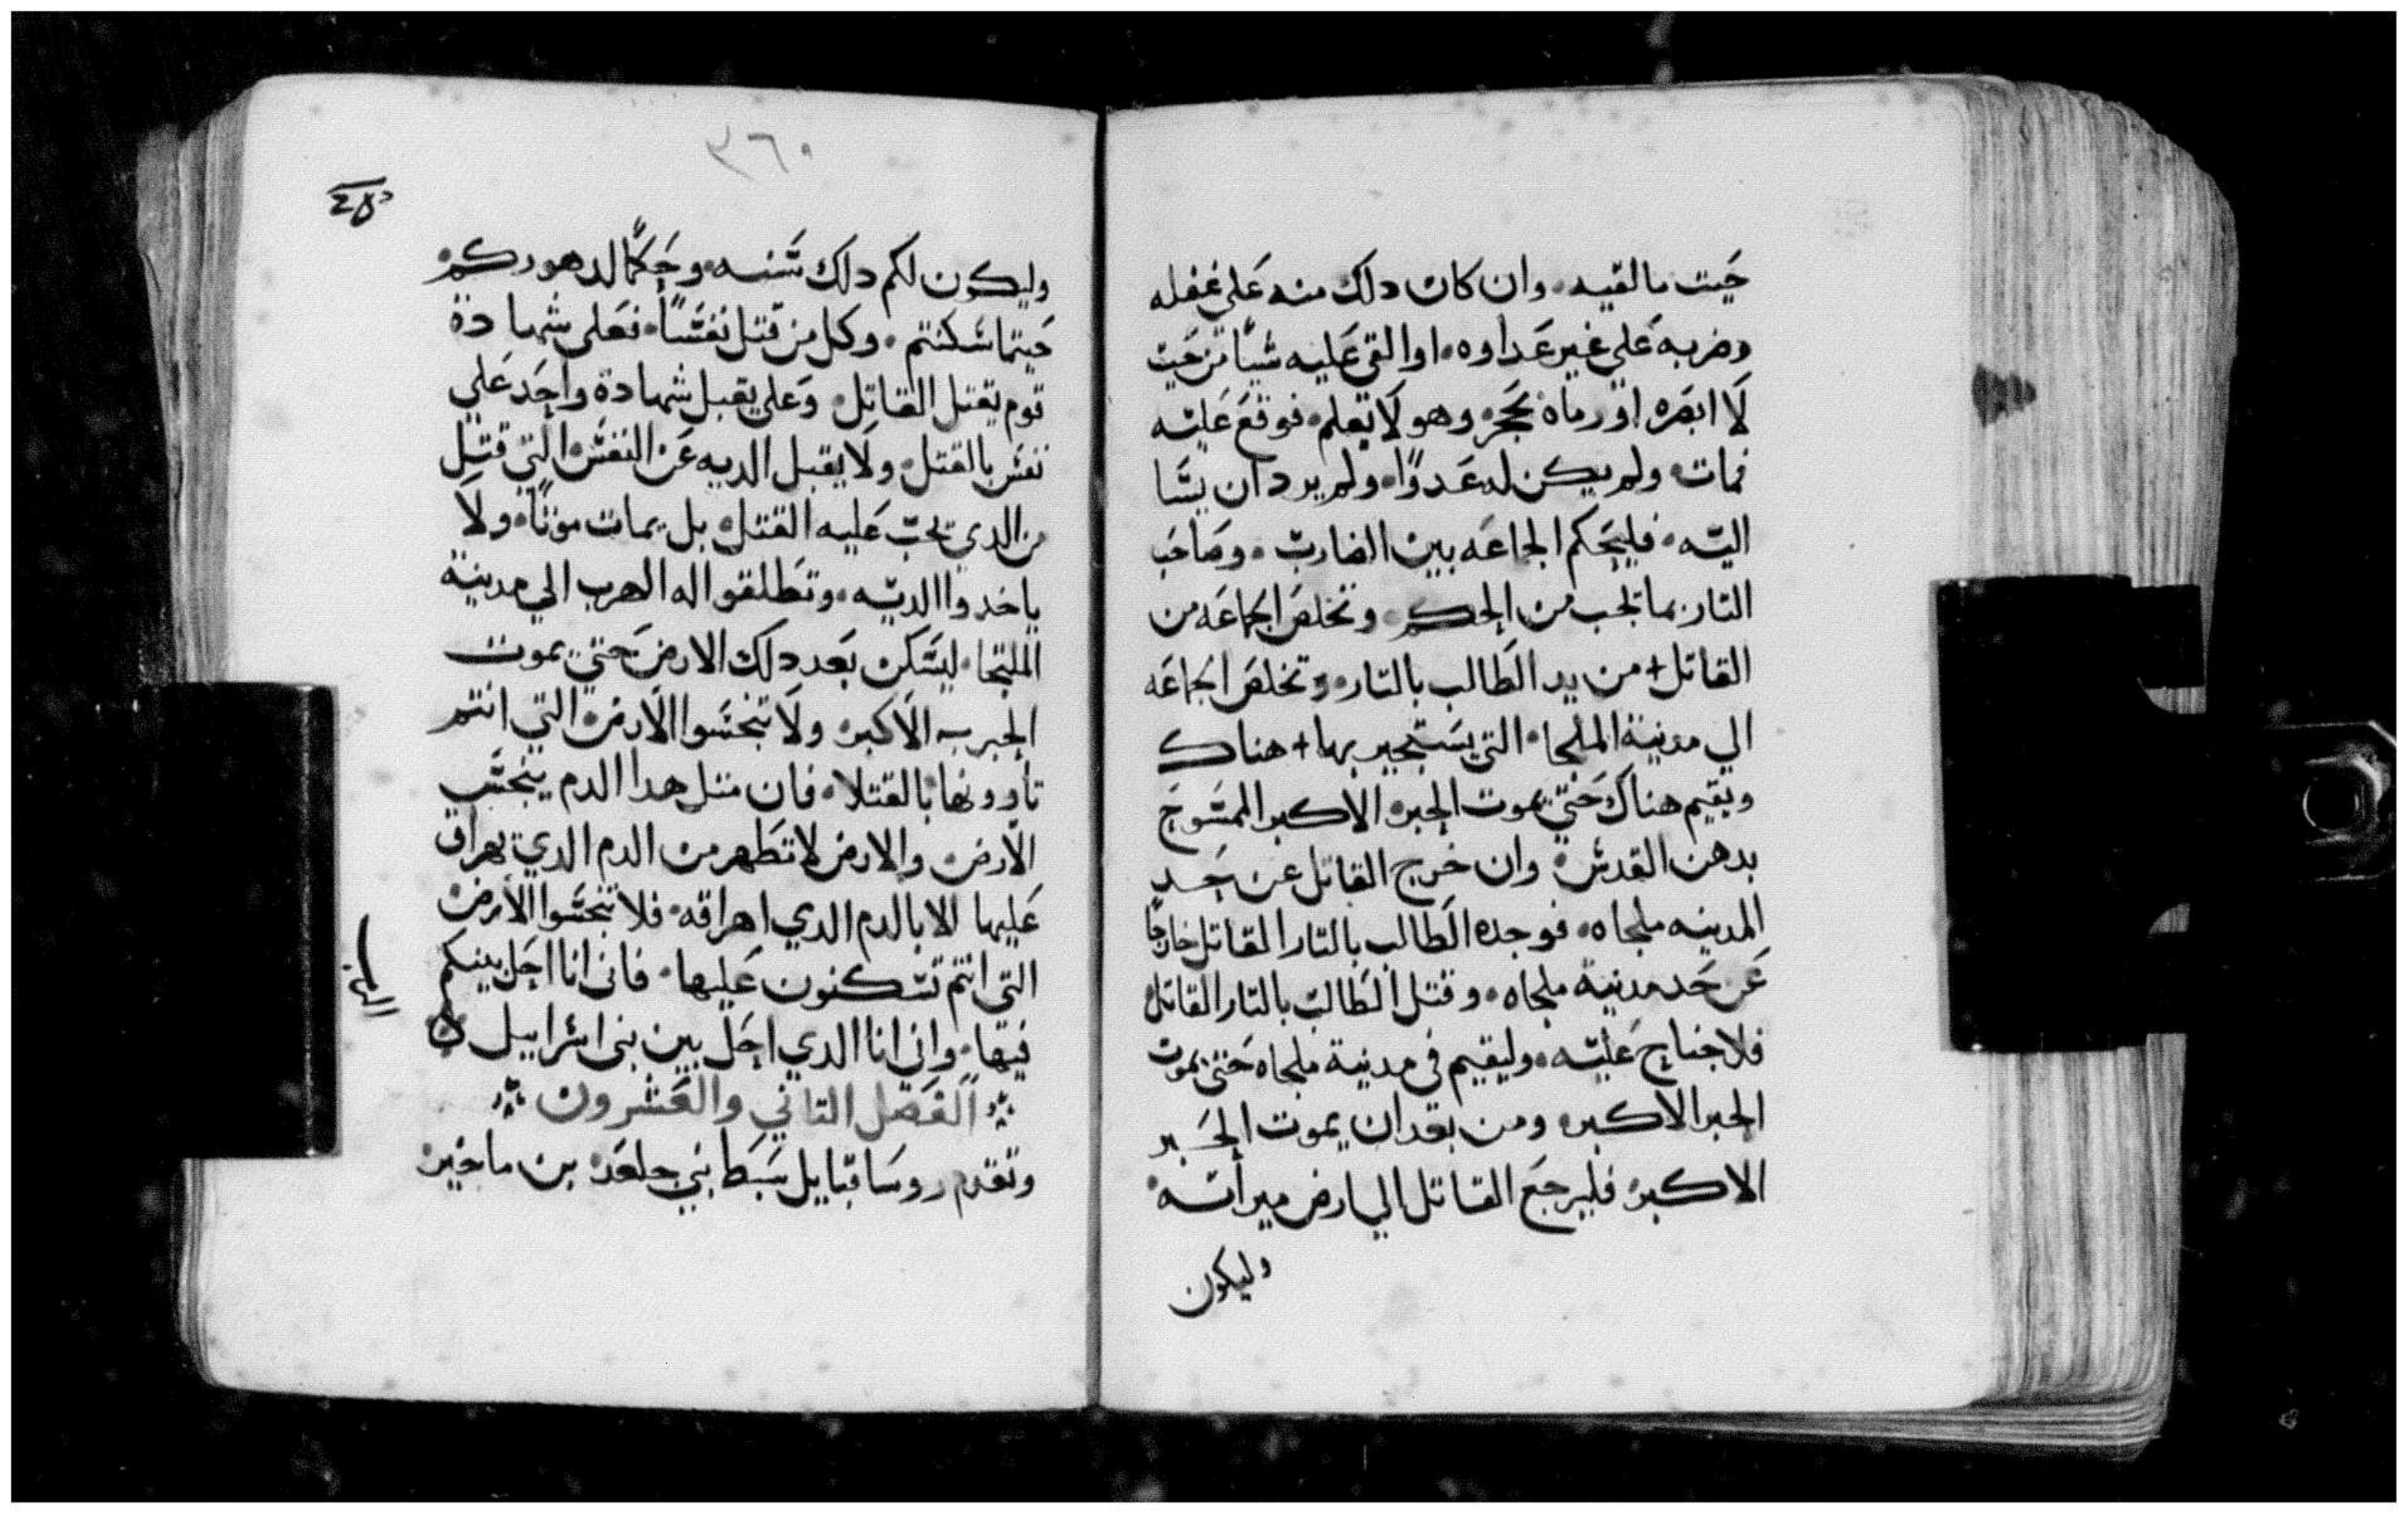 حيت ما لقيه. وان كان دلك منه على غفله
وضربه على غير عداوه. او القى عليه شيا من حيت
لا ابصره او رماه بحجر وهو لا يعلم. فوقع عليه
فمات. ولم يكن له عدوًا. ولم يرد ان يسا
اليه. فليحكم الجماعه بين الضارب. وصاحب
التار بما يجب من الحكم. وتخلص الجماعه من
القاتل + من يد الطالب بالتار. وتخلص الجماعه
الي مدينة الملجا. التي يستجير بها + هناك
ويقيم هناك حتي يموت الحبر الاكبر الممسوح
بدهن القدس. وان خرج القاتل عن حد
المدينه ملجاه. فوجده الطالب بالتار القاتل خارجًا
عن حد مدينة ملجاه. وقتل الطالب بالتار القاتل
فلا جناح عليه. وليقيم في مدينة ملجاه حتى يموت
الحبر الاكبر. ومن بعد ان يموت الحبر
الاكبر فليرجع القاتل الي ارض ميراته.
وليكون
٣٦٠
وليكون لكم دلك سنه. وحكمًا لدهوركم.
حيتما سكنتم. وكل من قتل نفسًا. فعلى شهادة
قوم يقتل القاتل. وعلى يقبل شهادة واحد علي
نفس بالقتل. ولا يقبل الديه عن النفس التي قتل
من الدي يجب عليه القتل. بل يمات موتًا. ولا
ياخدوا الديه. وتطلقوا له الهرب الي مدينة
الملتجا. ليسكن بعد دلك الارض حتي يموت
الحبر الاكبر. ولا تنجسوا الارض التي انتم
تاوونها بالقتلا. فان متل هدا الدم ينجس
الارض. والارض لا تطهر من الدم الدي يهراق
عليها الا بالدم الدي اهراقه. فلا تنجسوا الارض
التي انتم تسكنون عليها. فاني انا احل بينكم
فيها. واني انا الدي احل بين بني اسراييل
الفصل التاني والعشرون
وتقدم روسا قبايل سبط بني جلعد بن ماخير